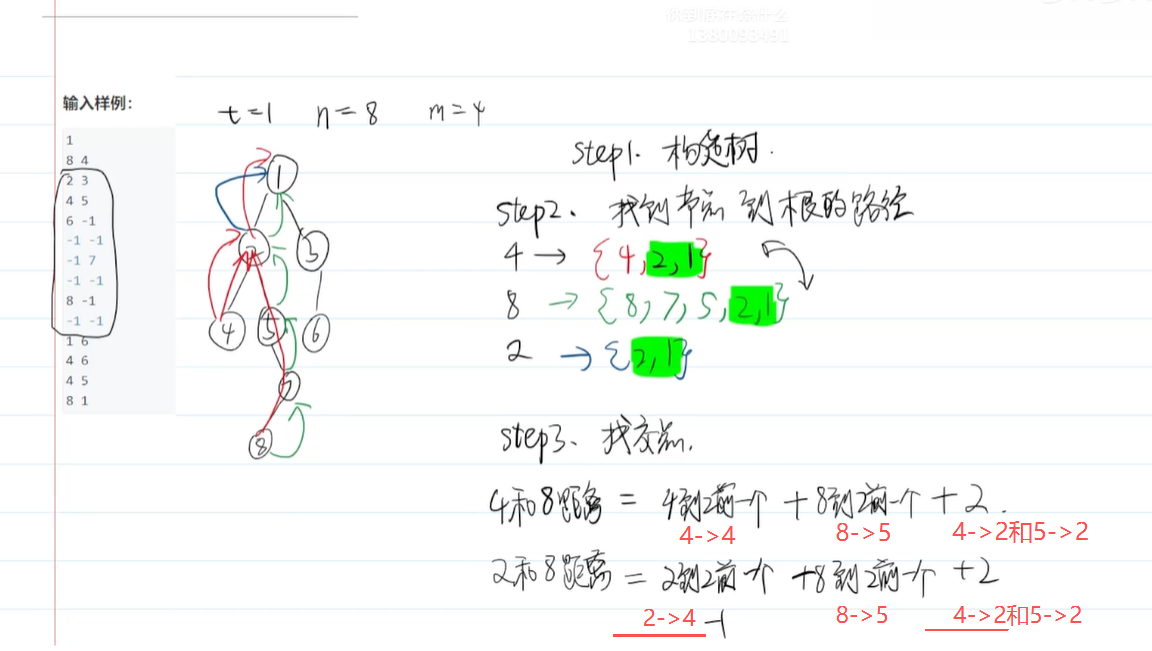 1380093491
输入样例：
1
8 4
2 3
4 5
6 -1
-1 -1
-1 7
-1 -1
8 -1
-1 -1
1 6
4 6
4 5
8 1
t=1 n=8 m=4
1
2 3
4 5 6
7
8
step1. 构造树.
step2. 找到节点到根的路径
4 → {4,2,1}
8 → {8,7,5,2,1}
2 → {2,1}
step3. 找交点.
4和8距离 = 4到2前一个 + 8到2前一个 + 2.
4->4 8->5 4->2和5->2
2和8距离 = 2到2前一个 +8到2前一个 +2
2->4 -1 8->5 4->2和5->2